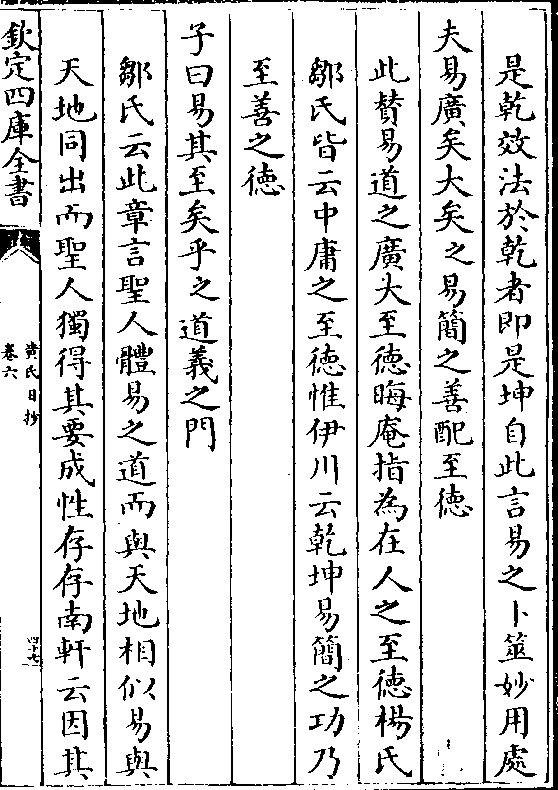 是乾效法於乾者即是坤自此言易之卜筮妙用處
夫易廣矣大矣之易簡之善配至德
此賛易道之廣大至德晦庵指為在人之至德楊氏
鄒氏皆云中庸之至德惟伊川云乾坤易簡之功乃
至善之德
子曰易其至矣乎之道義之門
鄒氏云此章言聖人體易之道而與天地相似易與
天地同出而聖人獨得其要成性存存南軒云因其
欽定四庫全書
黄氏日抄
卷六
四十七